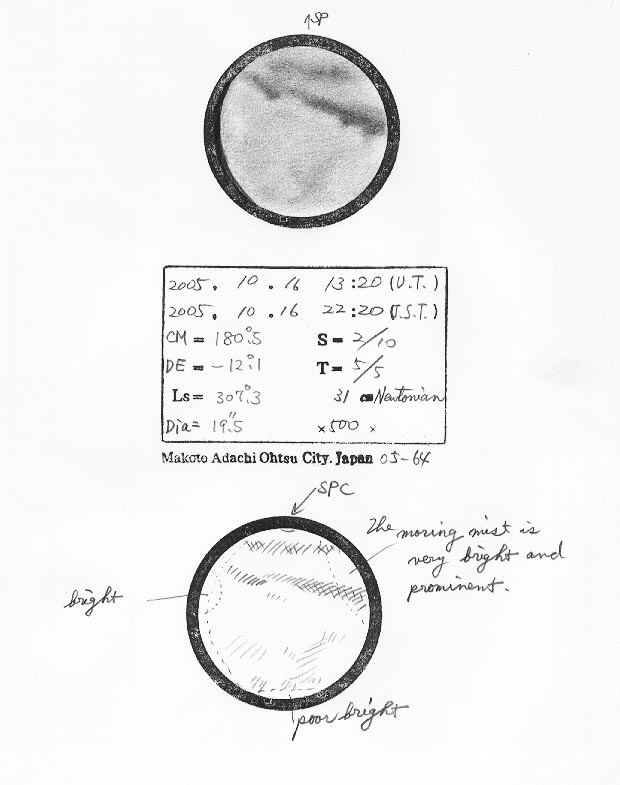 ↑SP
2005. 10. 16 13:20 (U.T.)
2005. 10. 16 22:20 (J.S.T.)
CM = 180°.5 S = 2/10
DE = -12°.1 T = 5/5
Ls = 307°.3 31 cm Newtonian
Dia = 19".5 ×500 ×
Makoto Adachi Ohtsu City. Japan 05-64
SPC
The moring mist is
very bright and
prominent.
bright
poor bright